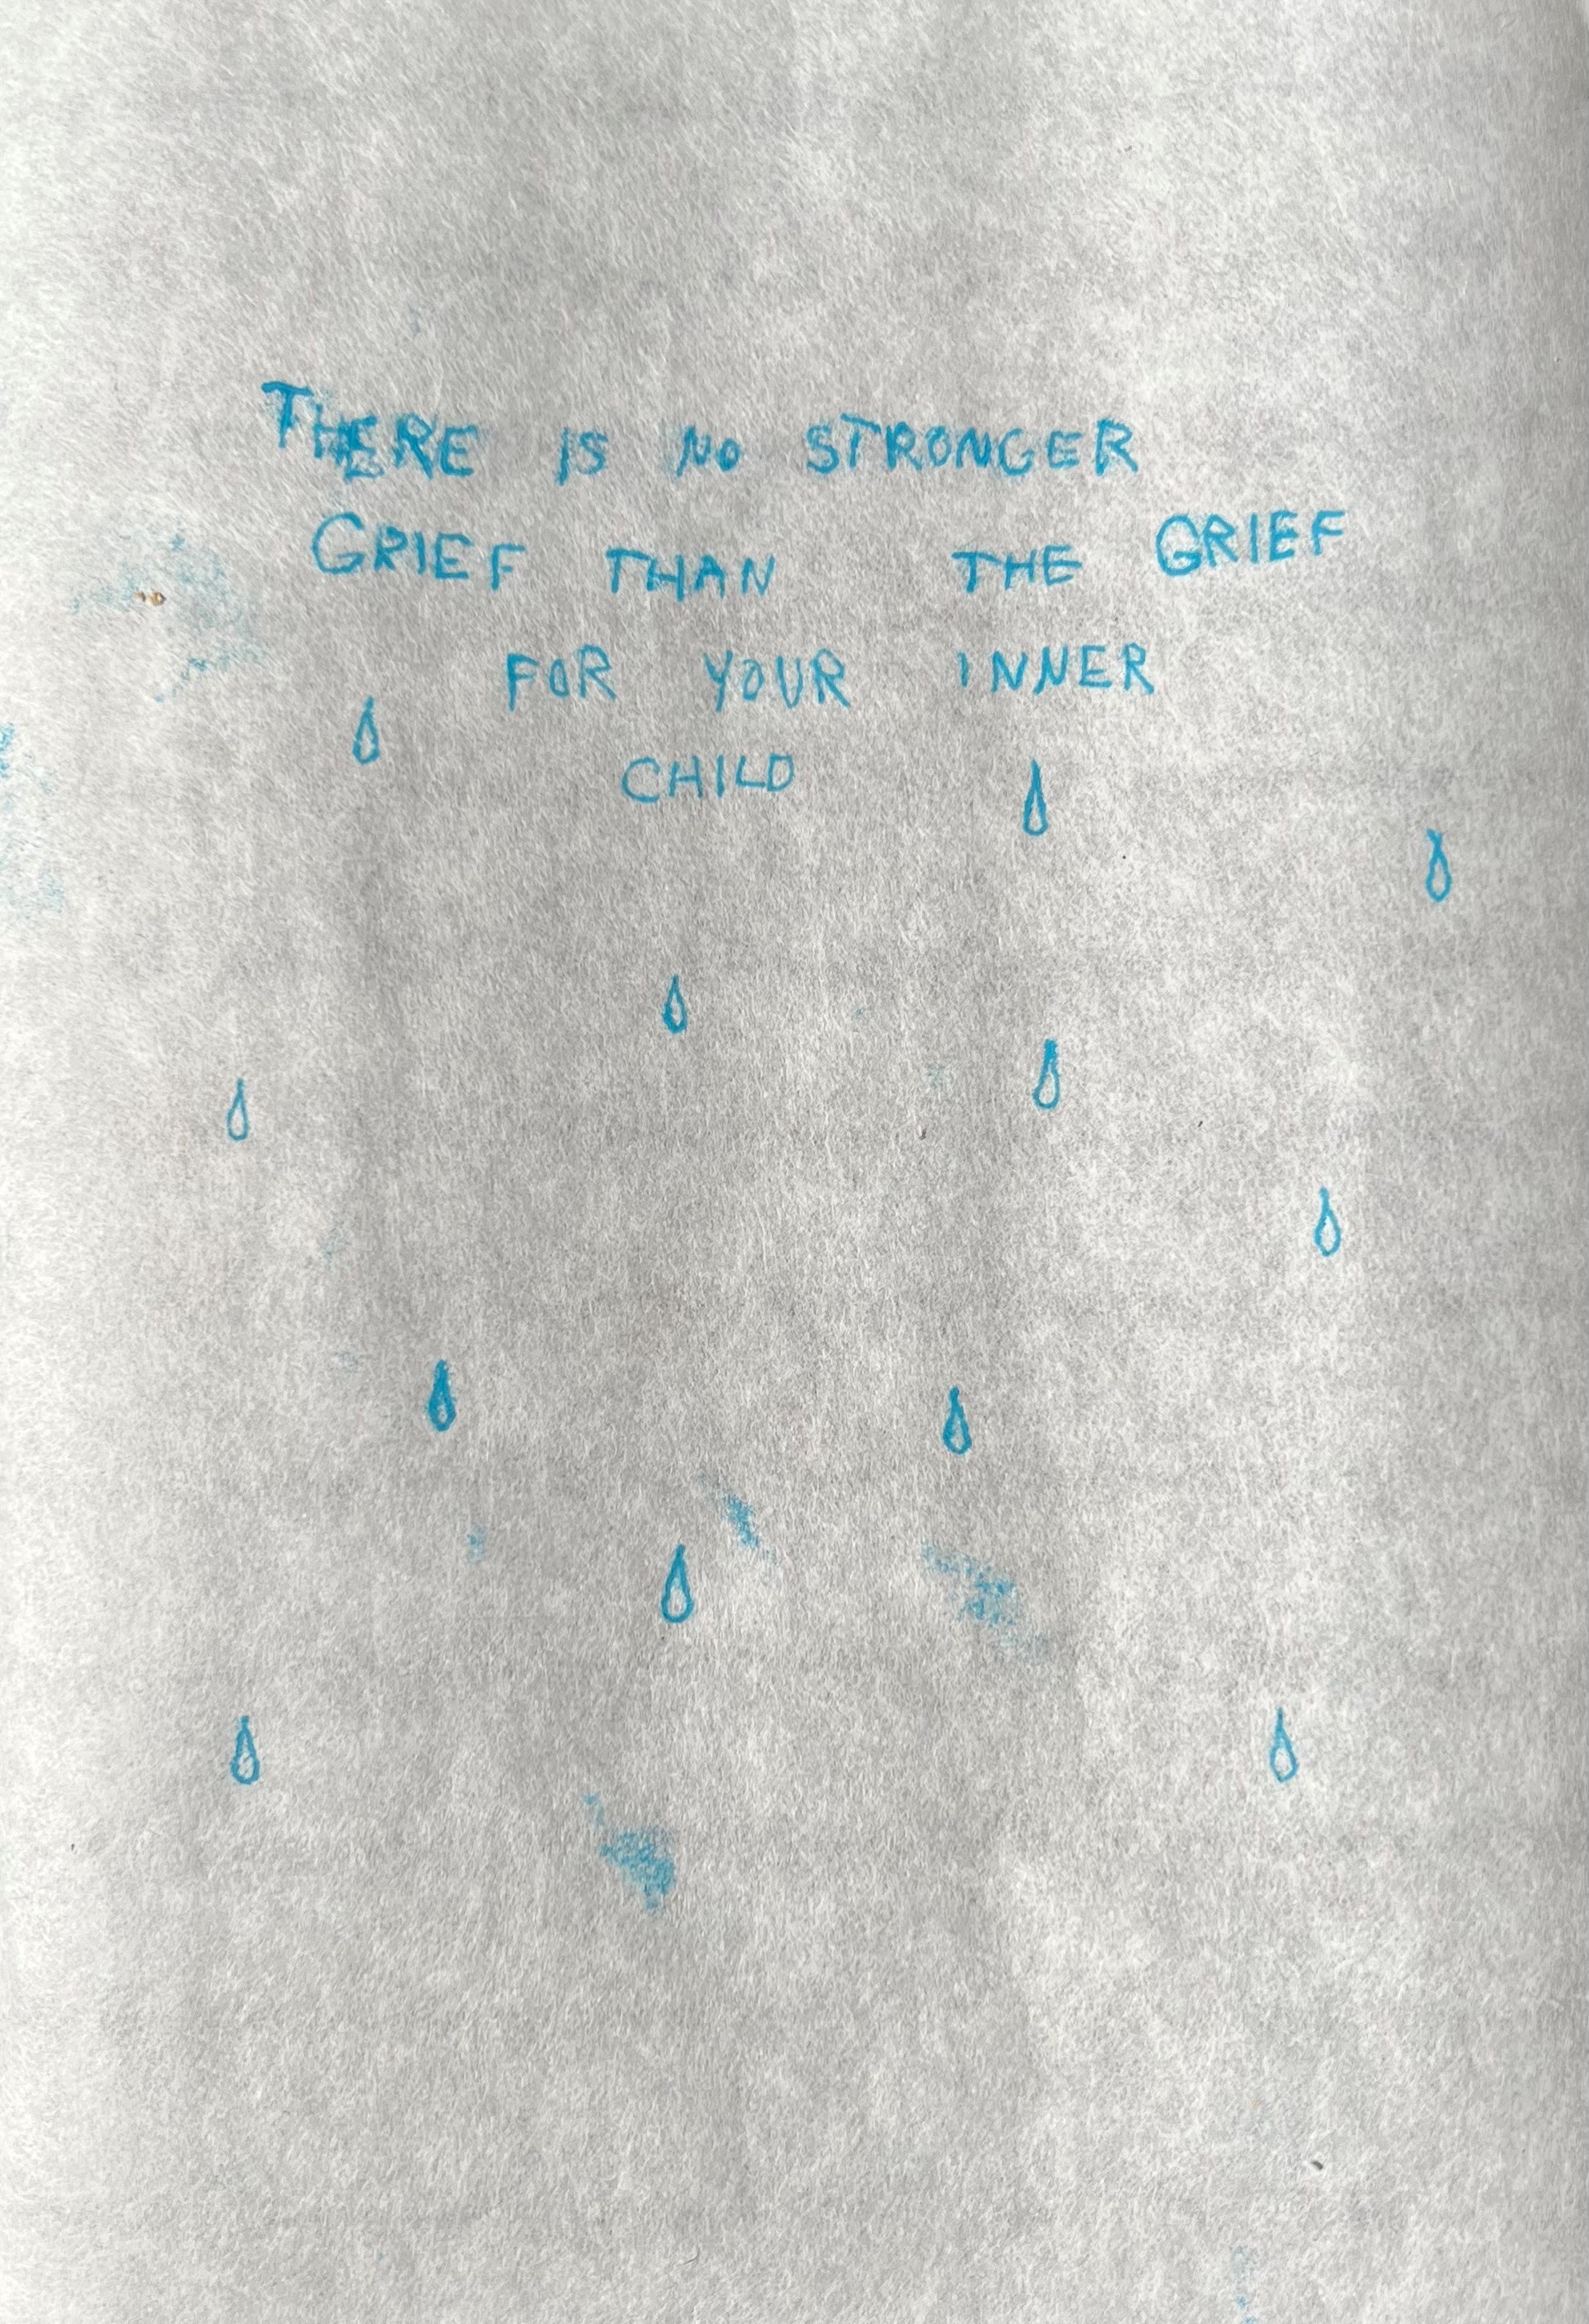 THERE IS NO STRONGER
GRIEF THAN THE GRIEF
FOR YOUR INNER
CHILD